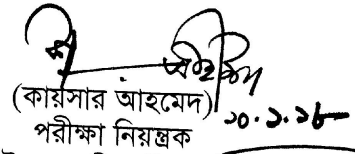 (কায়সার আহমেদ)
২০.১.১৮
পরীক্ষা নিয়ন্ত্রক